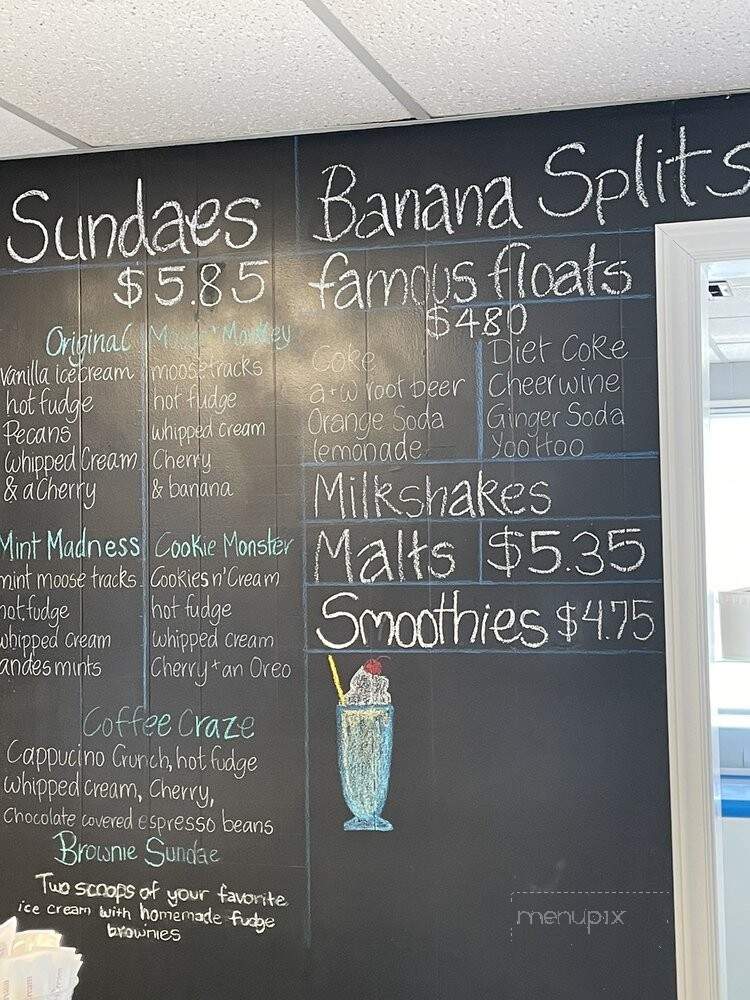 Sundaes
$5.85
Original
Vanilla ice cream
hot fudge
Pecans
Whipped Cream
& a Cherry
Monkey
moosetracks
hot fudge
whipped cream
Cherry
& banana
Mint Madness
mint moose tracks
hot fudge
whipped cream
andes mints
Cookie Monster
Cookies n' Cream
hot fudge
whipped cream
Cherry + an Oreo
Coffee Craze
Cappucino Crunch, hot fudge
whipped cream, Cherry,
Chocolate covered espresso beans
Brownie Sundae
Two scoops of your favorite
ice cream with homemade fudge
brownies
Banana Splits
famous floats
$4.80
Coke
a+w root beer
Orange Soda
lemonade
Diet Coke
Cheerwine
Ginger Soda
YooHoo
Milkshakes
Malts $5.35
Smoothies $4.75
menupix